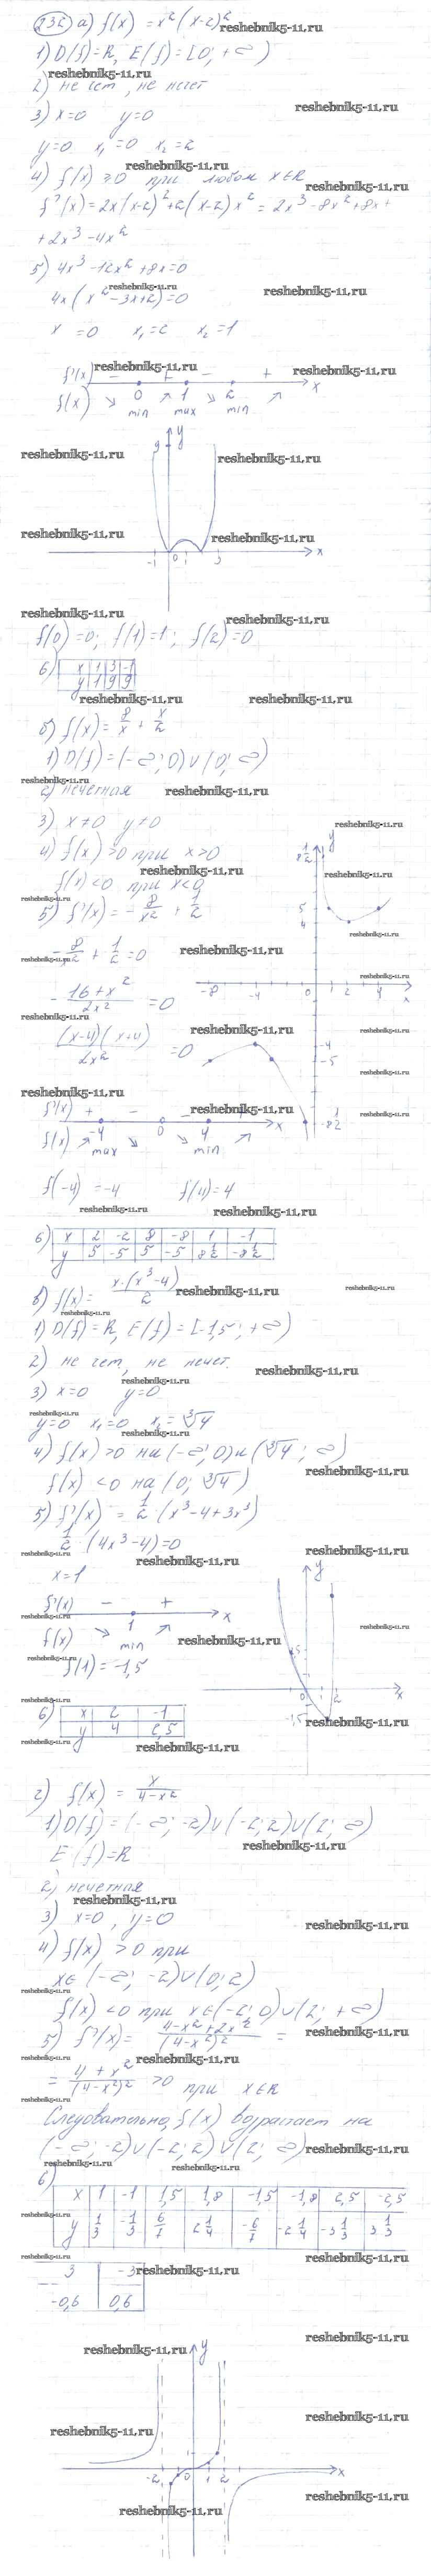 232 а) f(x) = x²(x-2)²
reshebnik5-11.ru
1) D(f)=R, E(f)=[0; +∞)
reshebnik5-11.ru
2) не чет, не нечет
reshebnik5-11.ru
3) x=0 y=0
y=0 x₁=0 x₂=2
reshebnik5-11.ru
4) f(x) ≥0 при любом x∈R
reshebnik5-11.ru
f'(x)=2x(x-2)²+2(x-2)x² = 2x³-8x²+8x+
+2x³-4x²
5) 4x³-12x²+8x=0
reshebnik5-11.ru
4x(x²-3x+2)=0
reshebnik5-11.ru
x=0 x₁=2 x₂=1
reshebnik5-11.ru reshebnik5-11.ru
f'(x) - + - + x
f(x) ↘ 0 ↗ 1 ↘ 2 ↗
min max min
y
9
reshebnik5-11.ru reshebnik5-11.ru
reshebnik5-11.ru reshebnik5-11.ru
-1 0 1 3 x
reshebnik5-11.ru reshebnik5-11.ru
f(0)=0; f(1)=1; f(2)=0
6) x 1 3 -1
y 1 9 9
reshebnik5-11.ru reshebnik5-11.ru
б) f(x)= 8/x + x/2
1) D(f)=(-∞; 0)∪(0; ∞)
reshebnik5-11.ru
2) нечетная
reshebnik5-11.ru
3) x≠0 y≠0
reshebnik5-11.ru
4) f(x)>0 при x>0
reshebnik5-11.ru
f(x)<0 при x<0
reshebnik5-11.ru
5) f'(x)= -8/x² + 1/2
reshebnik5-11.ru
-8/x² + 1/2 =0
reshebnik5-11.ru reshebnik5-11.ru
-16+x²/2x² =0
reshebnik5-11.ru
(x-4)(x+4)/2x² =0
y
8 1/2
5
4
reshebnik5-11.ru
-8 -4 0 1 2 4 x
reshebnik5-11.ru
-4
-5
reshebnik5-11.ru
-8 1/2
reshebnik5-11.ru reshebnik5-11.ru
f'(x) + - - + x
f(x) ↗ -4 ↘ 0 ↘ 4 ↗
max min
reshebnik5-11.ru
f(-4)=-4 f(4)=4
reshebnik5-11.ru reshebnik5-11.ru
6) x 2 -2 8 -8 1 -1
y 5 -5 5 -5 8 1/2 -8 1/2
в) f(x)= x·(x³-4)/2
reshebnik5-11.ru
reshebnik5-11.ru
1) D(f)=R, E(f)=[-1,5; +∞)
2) не чет, не нечет.
reshebnik5-11.ru
reshebnik5-11.ru
3) x=0 y=0
reshebnik5-11.ru
y=0 x₁=0 x₂=∛4
reshebnik5-11.ru
4) f(x)>0 на (-∞; 0) и (∛4; ∞)
reshebnik5-11.ru
f(x)<0 на (0; ∛4)
5) f'(x)= 1/2·(x³-4+3x³)
reshebnik5-11.ru
1/2·(4x³-4)=0
reshebnik5-11.ru reshebnik5-11.ru
x=1
reshebnik5-11.ru
f'(x) - + x
f(x) ↘ 1 ↗
min
reshebnik5-11.ru
reshebnik5-11.ru
f(1)=-1,5
y
0 2 x
-1,5
reshebnik5-11.ru
reshebnik5-11.ru
6) x 2 -1
y 4 2,5
reshebnik5-11.ru
reshebnik5-11.ru
г) f(x)= x/4-x²
1) D(f)=(-∞; -2)∪(-2; 2)∪(2; ∞)
reshebnik5-11.ru
E(f)=R
2) нечетная
reshebnik5-11.ru
3) x=0, y=0
reshebnik5-11.ru
4) f(x)>0 при
x∈(-∞; -2)∪(0; 2)
reshebnik5-11.ru
reshebnik5-11.ru
f(x)<0 при x∈(-2; 0)∪(2; +∞)
5) f'(x)= 4-x²+2x²/(4-x²)² =
reshebnik5-11.ru
reshebnik5-11.ru
= 4+x²/(4-x²)² >0 при x∈R
reshebnik5-11.ru
reshebnik5-11.ru
Следовательно, f(x) возрастает на
(-∞; -2)∪(-2; 2)∪(2; ∞)
reshebnik5-11.ru
reshebnik5-11.ru reshebnik5-11.ru
6)
x 1 -1 1,5 1,8 -1,5 -1,8 2,5 -2,5
reshebnik5-11.ru
y 1/3 -1/3 6/7 2 1/4 -6/7 -2 1/4 -3 1/3 3 1/3
reshebnik5-11.ru
3 -3
reshebnik5-11.ru
-0,6 0,6
reshebnik5-11.ru
reshebnik5-11.ru
y
reshebnik5-11.ru reshebnik5-11.ru
-2 0 1 2 x
reshebnik5-11.ru
reshebnik5-11.ru